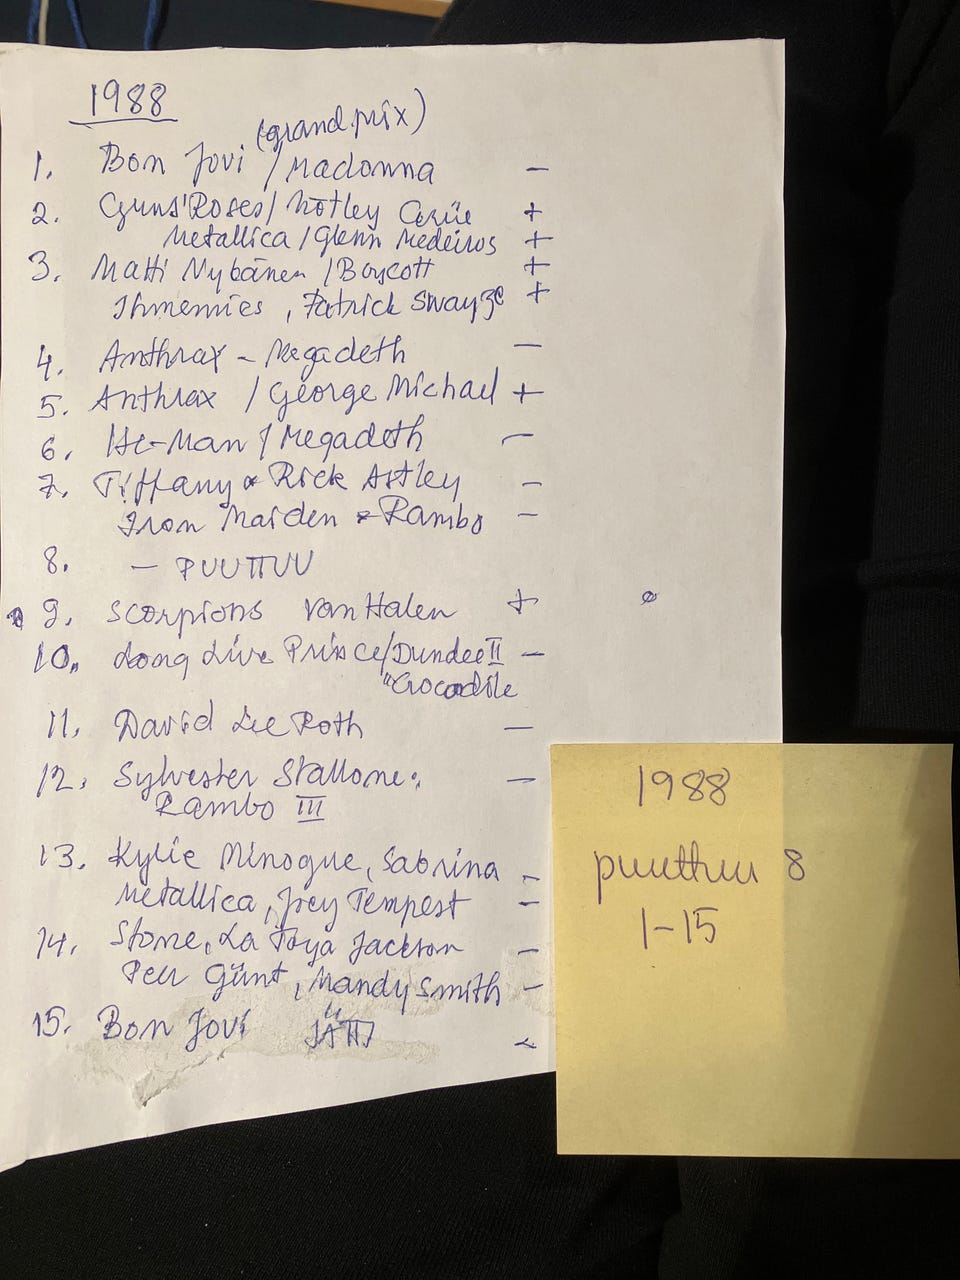 1988
(grand.prix)
1. Bon Jovi / Madonna –
2. Guns'Roses / Mötley Crüe +
Metallica / Glenn Medeiros +
3. Matti Nykänen / Boycott +
Ihmemies, Patrick Swayze +
4. Anthrax – Megadeth –
5. Anthrax / George Michael +
6. He-Man / Megadeth –
7. Tiffany Rick Astley –
Iron Maiden Rambo –
8. – PUUTTUU
9. Scorpions Van Halen +
10. Long Live Prince/Dundee II –
"Crocodile
11. David Lee Roth –
12. Sylvester Stallone: –
Rambo III
13. Kylie Minogue, Sabrina –
Metallica, Joey Tempest –
14. Stone, La Toya Jackson –
Peer Günt, Mandy Smith –
15. Bon Jovi JÄTTI –
1988
puuttuu 8
1–15